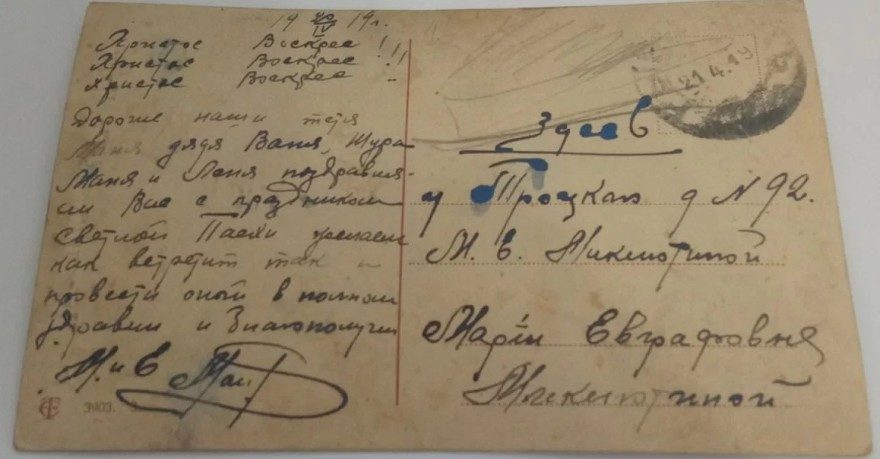 19 20/IV 19 г.
Христос Воскрес!
Христос Воскрес!!
Христос Воскрес
Дорогие наши тетя
Маня дядя Ваня, Шура
Маня и Леня поздравля-
ем Вас с праздником
Светлой Пасхи желаем
как встретит так и
провести оной в полном
здравии и благополучии
М. и Е
21.4.19
Здесь
у Троцкаю д N 92.
М. Е. Микютиной
Маріи Евграфовне
Микютиной